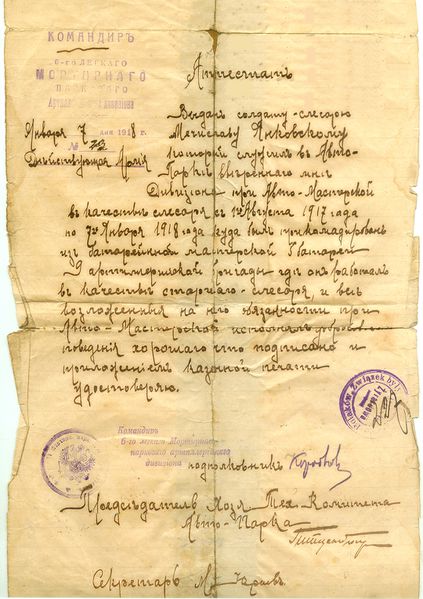 КОМАНДИРЪ
6-го ЛЕГКАГО
МОРТИРНАГО
ПАРКОВАГО
Аттестатъ
Января 7 дня 1918 г.
№
Дѣйствующая Армія
Выданъ солдату-слесарю
Мечиславу Янковскому
который служилъ въ Авто-
Паркѣ мнѣ
Дивизіона при Авто-Мастерской
въ качествѣ слесаря съ 1го Августа 1917 года
по 7ое Января 1918 года куда былъ прикомандированъ
изъ батарейной мастерской батареи
артиллерійской бригады гдѣ онъ работалъ
въ качествѣ старшаго-слесаря, и всѣ
возложенныя на него обязанности при
Авто-Мастерской исполнялъ
поведенія хорошаго что подписано и
приложеніемъ казенной печати
удостовѣряю.
Командиръ
6-го легкаго Мортирнаго
парковаго артиллерійскаго
дивизіона
подполковникъ
Предсѣдатель Хозя. Тех. Комитета
Авто-Парка
Секретарь М.
Polaków Związek był.